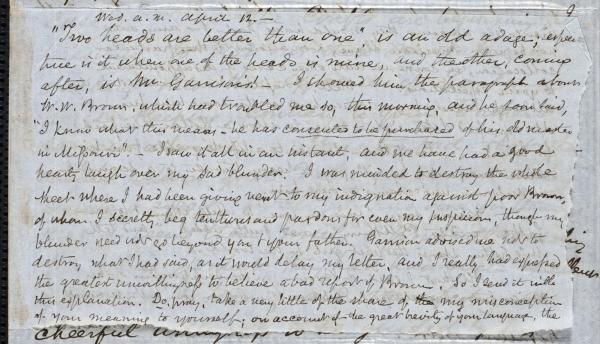 Wed. a.m. April 12. —
"Two heads are better than one" is an old adage; espec
true is it when one of the heads is mine, and the other, coming
after, is Mr. Garrison's! — I showed him the paragraph about
W. W. Brown, which had troubled me so, this morning, and he soon said,
"I know what this means — he has consented to be purchased of his old master
in Missouri". — I saw it all in an instant, and we have had a good
hearty laugh over my sad blunder. I was minded to destroy the whole
sheet where I had been giving vent to my indignation against poor Brown,
of whom I secretly beg and pardons for even my suspicions, though my
blunder need not go beyond you & your father. Garrison advised me not to
destroy what I had said, as it would delay my letter, and I really had expressed
the greatest unwillingness to believe a bad report of Brown. So I send it with
this explanation. Do, pray, take a very little of the share of the my misconception
of your meaning to yourself, on account of the great brevity of your language, the
cheerful